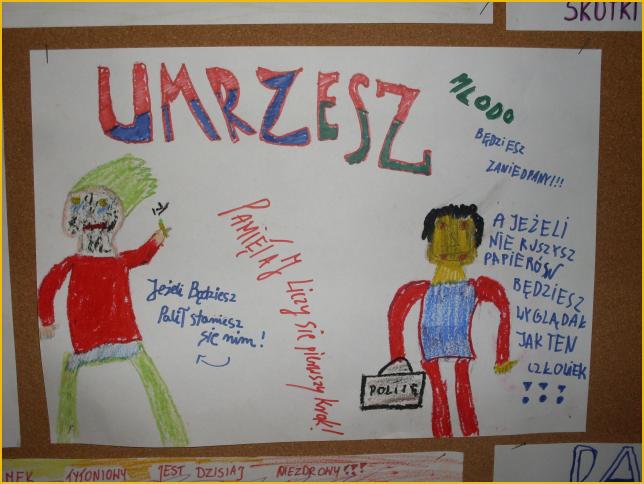 SKUTKI
UMRZESZ
MŁODO
BĘDZIESZ
ZANIEDBANY!!!
PAMIĘTAJ
Liczy się pierwszy krok!
Jeżeli Będziesz
Palił staniesz
się nim!
A JEŻELI
NIE RUSZYSZ
PAPIERÓW
BĘDZIESZ
WYGLĄDAŁ
JAK TEN
CZŁOWIEK
!!!
TYTONIOWY JEST DZISIAJ NIEZDROWY!!!